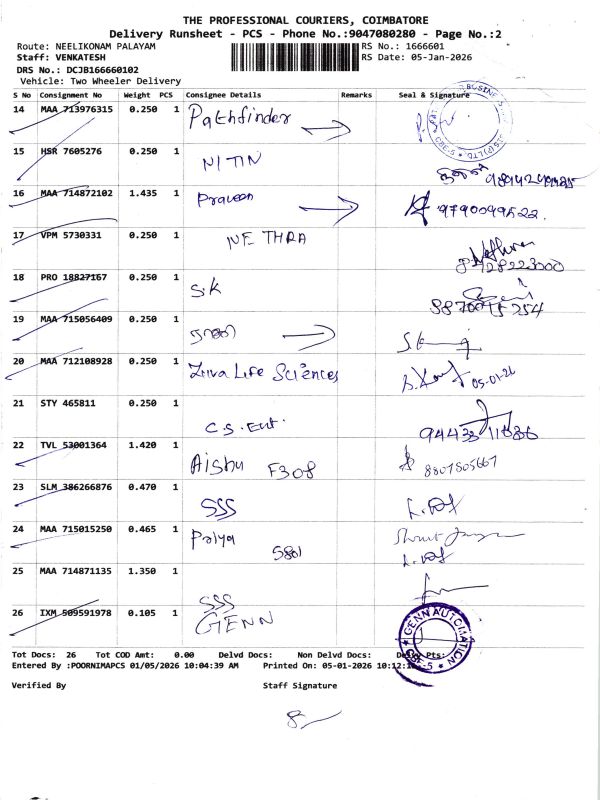 THE PROFESSIONAL COURIERS, COIMBATORE
Delivery Runsheet - PCS - Phone No.:9047080280 - Page No.:2
Route: NEELIKONAM PALAYAM RS No.: 1666601
Staff: VENKATESH RS Date: 05-Jan-2026
DRS No.: DCJB166660102
Vehicle: Two Wheeler Delivery
S No Consignment No Weight PCS Consignee Details Remarks Seal & Signature
14 MAA 713976315 0.250 1 Pathfinder
15 HSR 7605276 0.250 1 NITIN
16 MAA 714872102 1.435 1 Praveen 9790099522
17 VPM 5730331 0.250 1 NETHRA
18 PRO 18827167 0.250 1 S.K
19 MAA 715056409 0.250 1
20 MAA 712108928 0.250 1 Ziiva Life Sciences 05-01-26
21 STY 465811 0.250 1 C.S. Ent.
22 TVL 53001364 1.420 1 Aishu F308 8807805667
23 SLM 386266876 0.470 1 SSS
24 MAA 715015250 0.465 1 Priya 5801
25 MAA 714871135 1.350 1 SSS
26 IXM 509591978 0.105 1 GENN
GENN AUTOMATION CBE-5
Tot Docs: 26 Tot COD Amt: 0.00 Delvd Docs: Non Delvd Docs: Pts:
Entered By :POORNIMAPCS 01/05/2026 10:04:39 AM Printed On: 05-01-2026 10:12:
Verified By Staff Signature